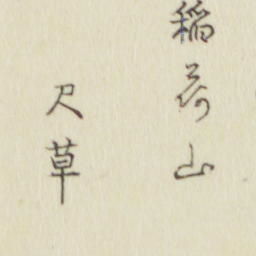 稲荷山
尺草